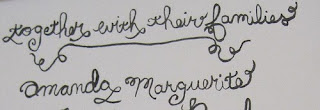 together with their families
Amanda Marguerite